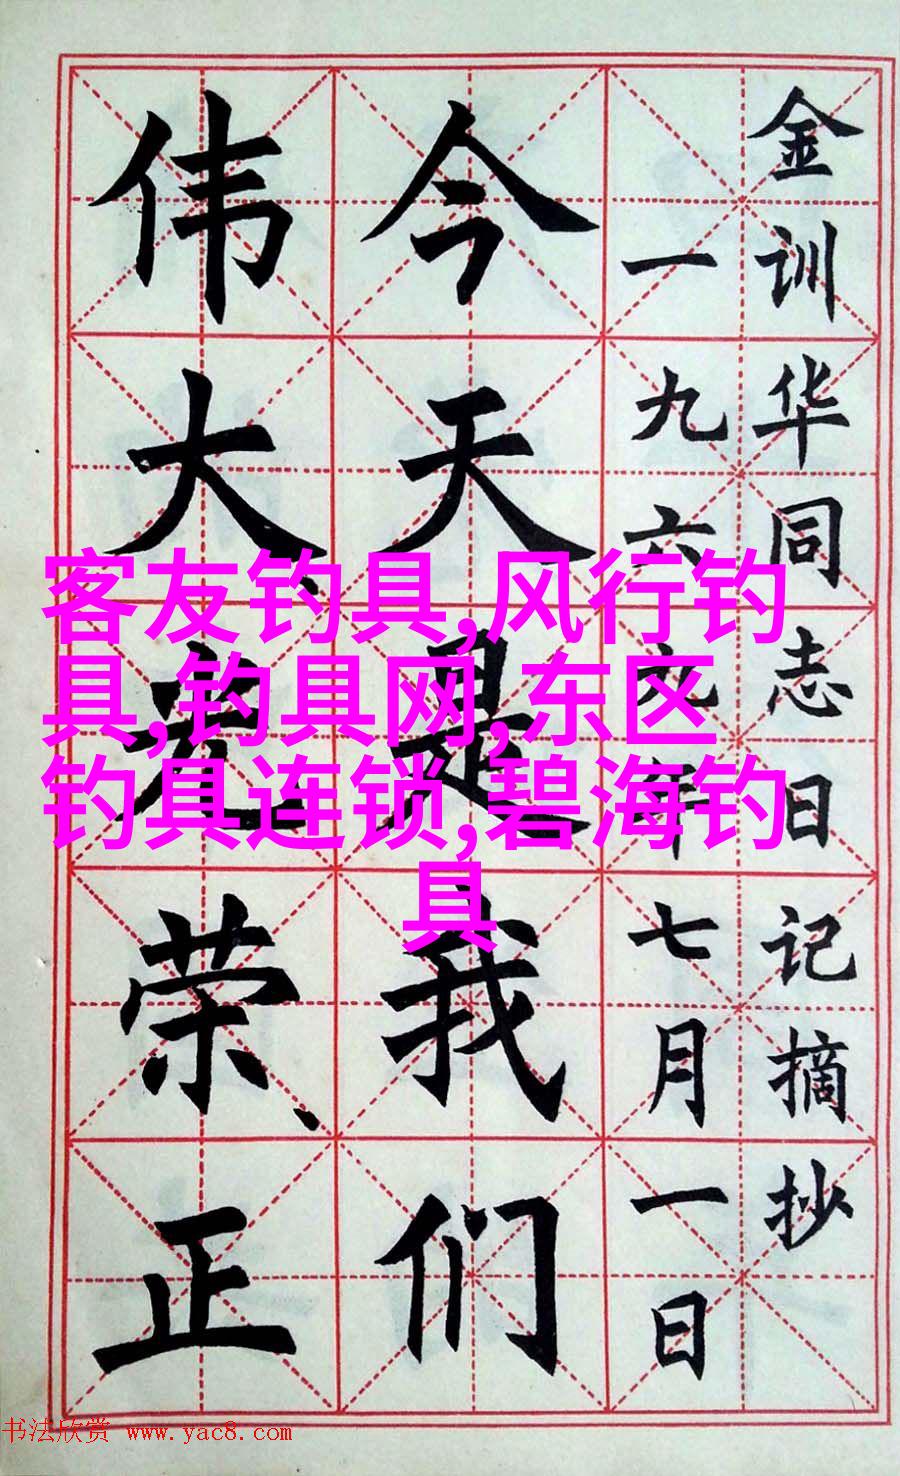 金训华同志日记摘抄
一九六九年七月一日
今天是我们
伟大、光荣、正
客友钓具,风行钓
具,钓具网,东区
钓具连锁,碧海钓
具
书法欣赏 www.yac8.com